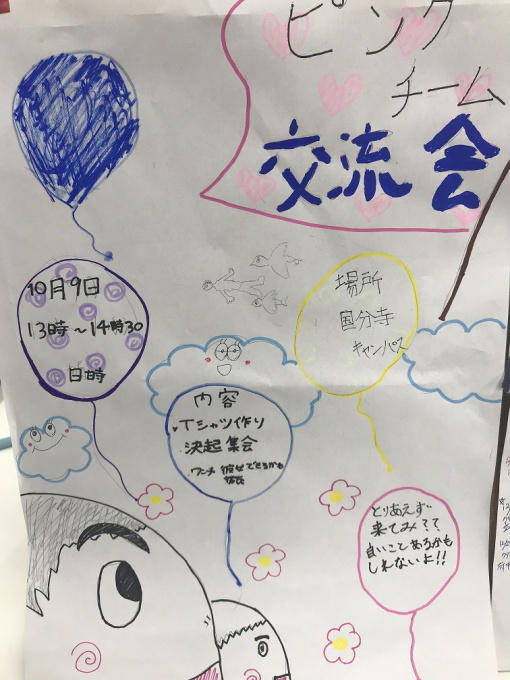 ピンク
チーム
交流会
10月9日
13時〜14時30
日時
場所
国分寺
キャンパス
内容
Tシャツ作り
決起集会
ワンチャ 彼女できるかも
彼氏
とりあえず
来てみ??
良いことあるかも
しれないよ!!